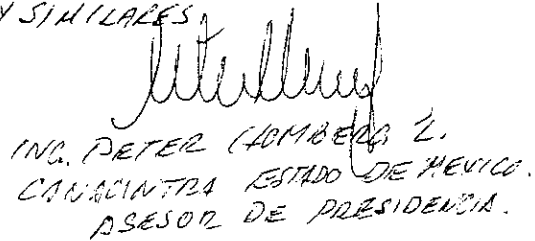 Y SIMILARES.
ING. PETER HOMBERG Z.
CANACINTRA ESTADO DE MEXICO.
ASESOR DE PRESIDENCIA.